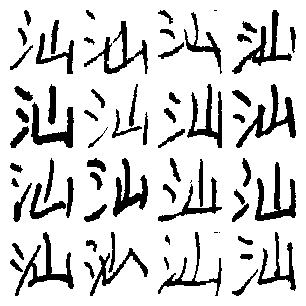 汕汕汕汕
汕汕汕汕
汕汕汕汕
汕汕汕汕